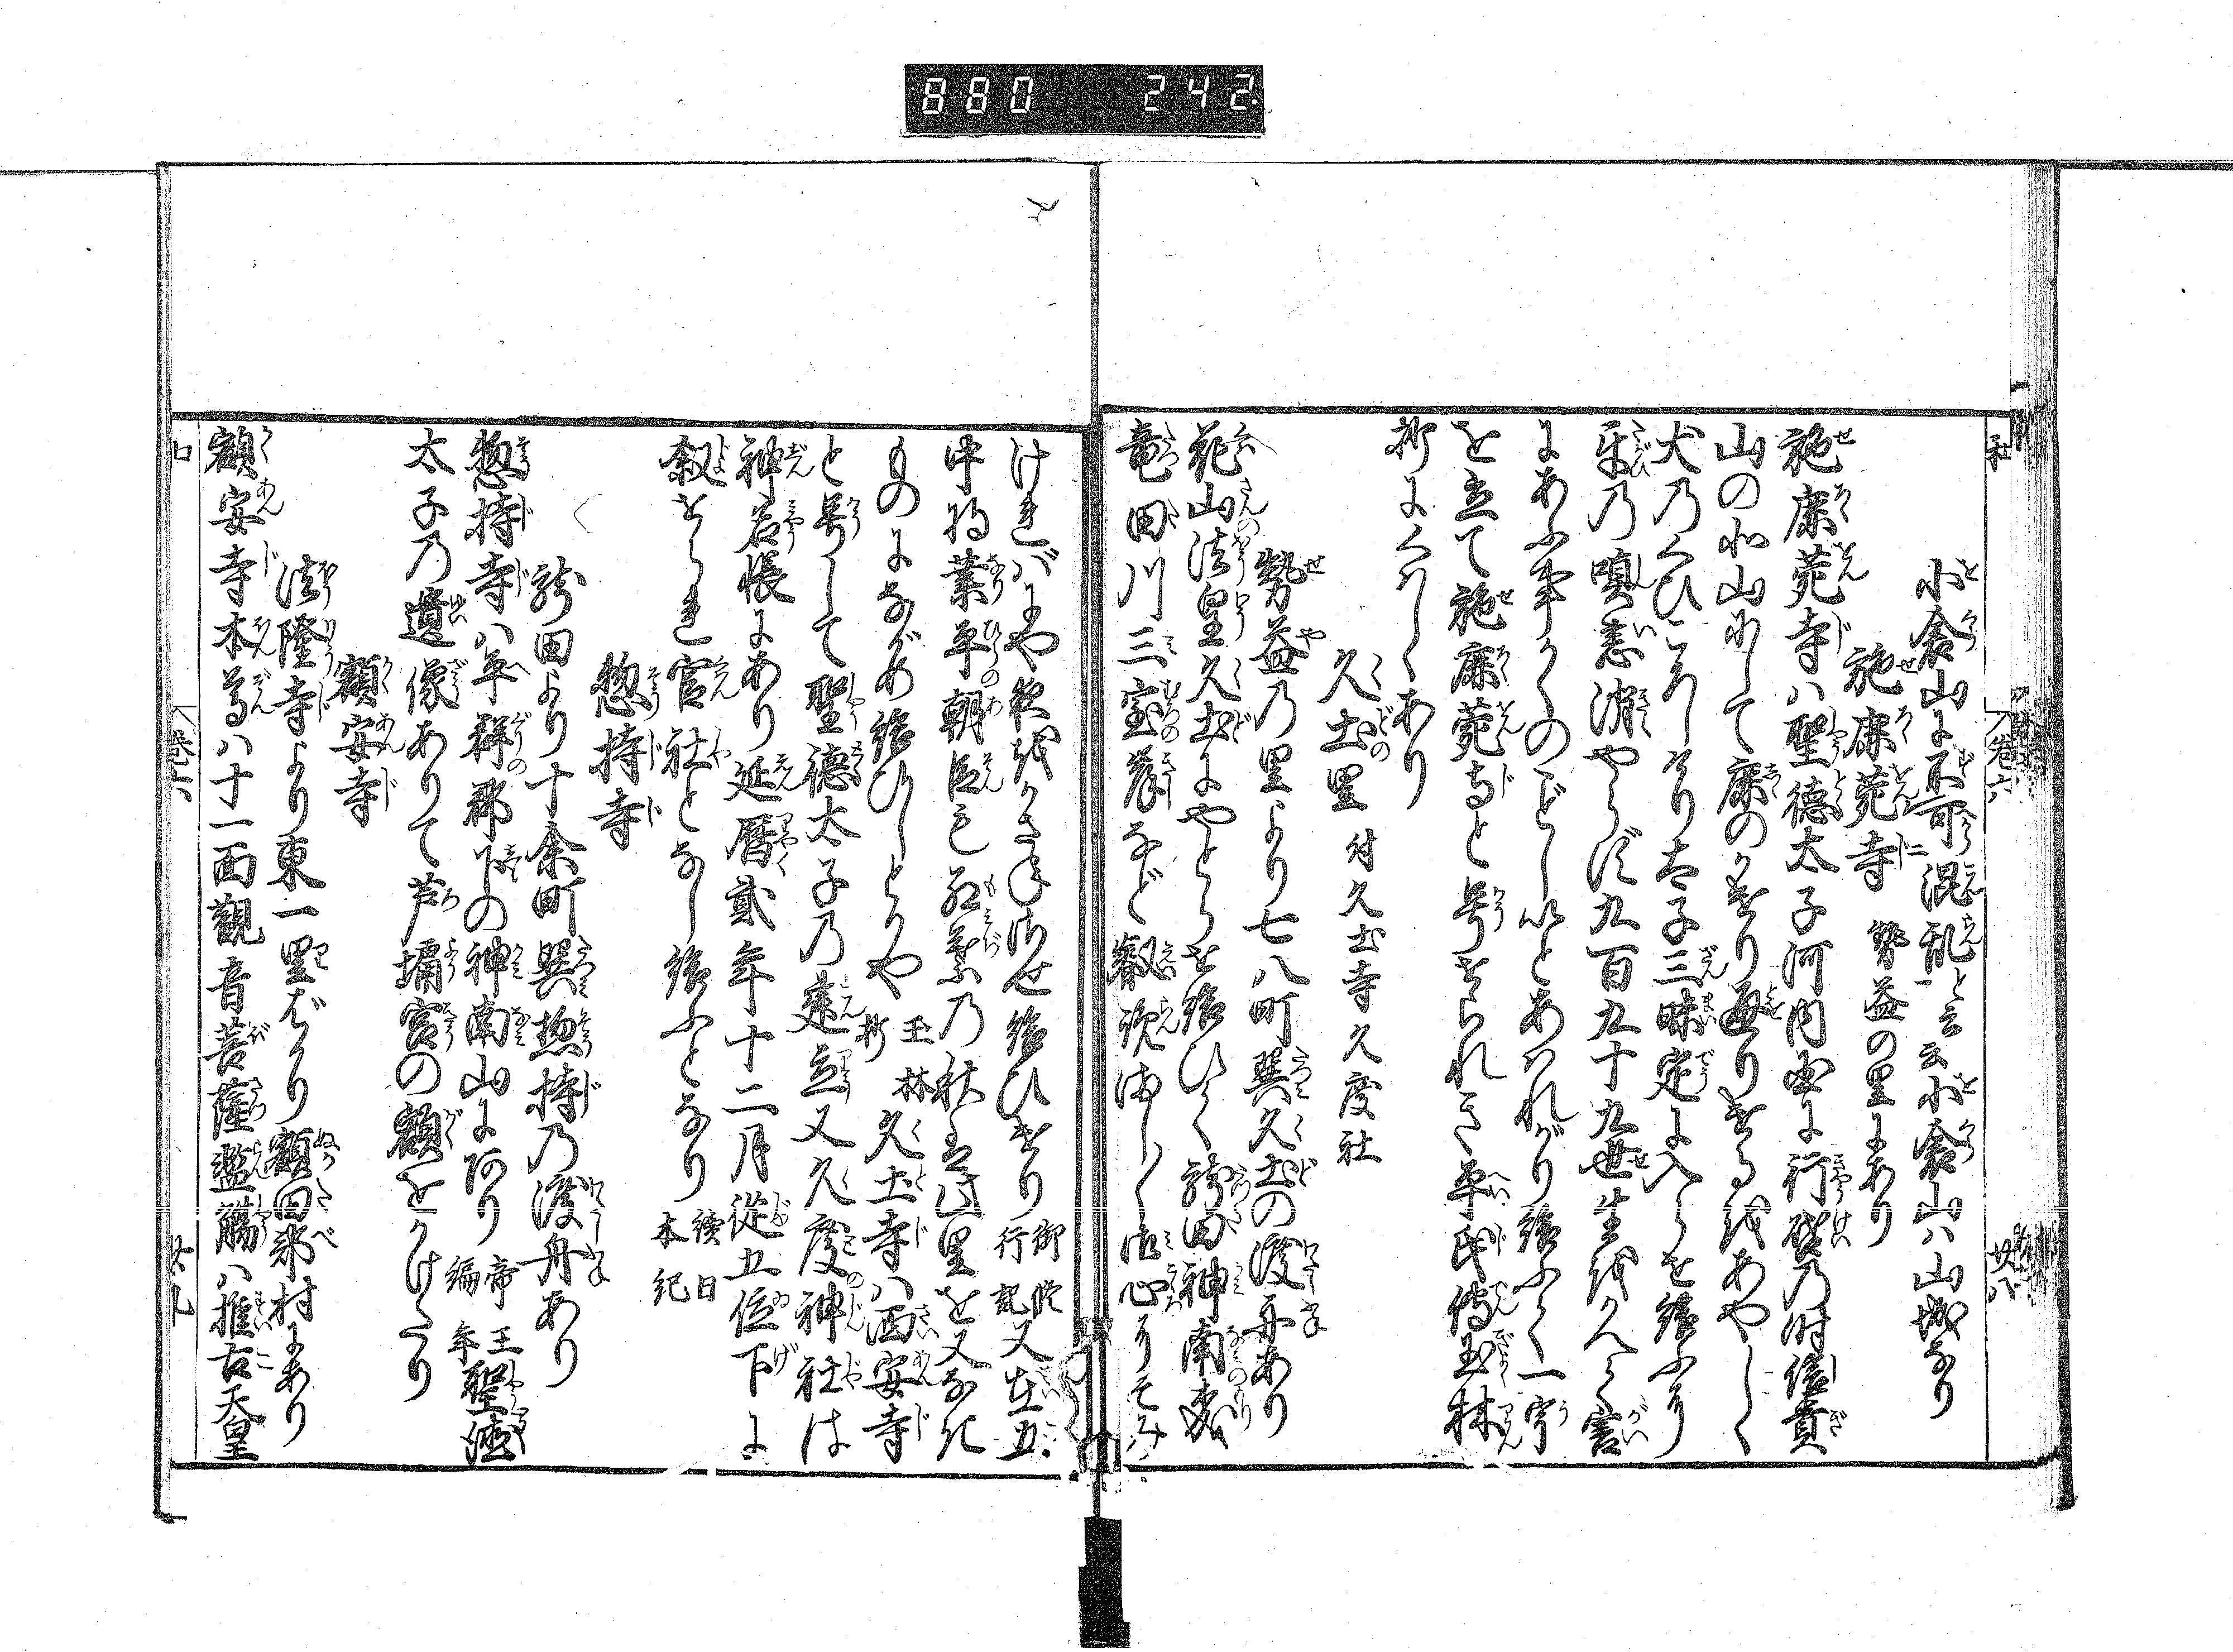 880 242.
小倉山に不可混乱と云云小倉山ハ山城なり
施鹿苑寺 勢益の里にあり
施鹿苑寺ハ聖徳太子河内国に行啓乃時信貴
山の北山にして鹿のかせり通りけるをあやしく
犬乃くひころしけり太子三昧定に入らせ給ふけり
牙乃嗔恚消やらず九百九十九世生をへて害
にあふ事かくのごとしいとあはれがり給ふて一宇
を立て施鹿苑寺と号せられき平氏伝玉林
抄にくはしくあり
久土里 付久土寺久度社
勢益乃里より七八町巽久土の渡舟あり
花山法皇久土にやとらせ給ひて龍田神南表
竜田川三室岸など叡覧ましく御心すみ
けれバにや夜をかさねませ給ひけり 御修行記 又在五
中将業平朝臣も紅葉乃秋は此里を又なき
ものにながめ給ひしとかや 玉林抄 久土寺ハ西安寺
と号して聖徳太子乃建立又久度神社は
神名帳にあり延暦貳年十二月従五位下に
叙せられ官社となし給ふとなり 續日本紀
惣持寺
龍田より十余町巽惣持乃渡舟あり
惣持寺ハ平群郡下の神南山にあり 帝王編年 聖徳
太子乃遺像ありて芦墻宮の額をかけたり
額安寺
法隆寺より東一里ばかり額田部村にあり
額安寺本尊ハ十一面觀音菩薩濫觴ハ推古天皇
巻六
廿八
巻六